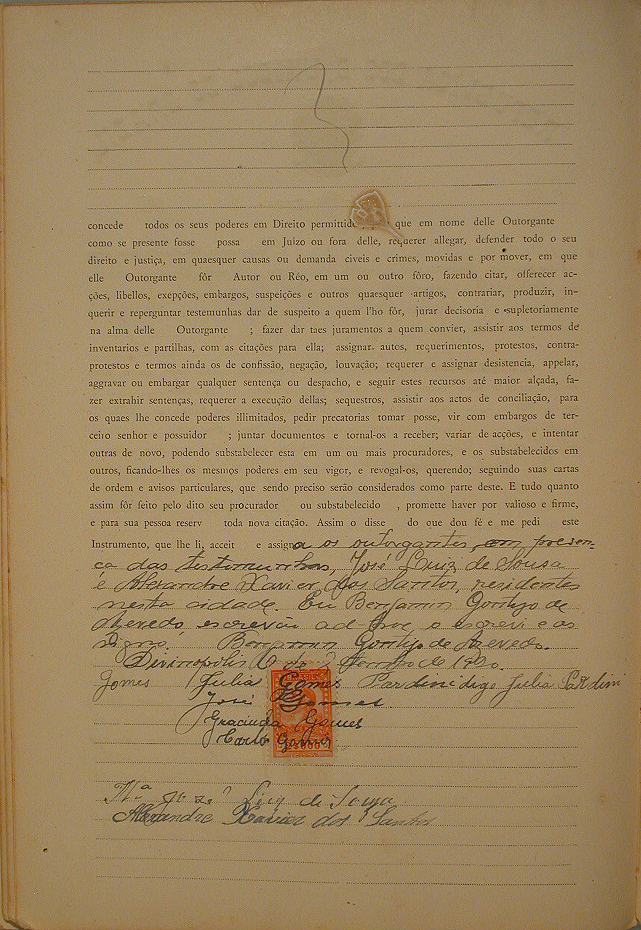 concede todos os seus poderes em Direito permittid que em nome delle Outorgante
como se presente fosse possa em Juizo ou fora delle, requerer allegar, defender todo o seu
direito e justiça, em quaesquer causas ou demanda civeis e crimes, movidas e por mover, em que
elle Outorgante fôr Autor ou Réo, em um ou outro fôro, fazendo citar, offerecer ac-
ções, libellos, exepções, embargos, suspeições e outros quaesquer artigos, contrariar, produzir, in-
querir e reperguntar testemunhas dar de suspeito a quem l'ho fôr, jurar decisoria e supletoriamente
na alma delle Outorgante ; fazer dar taes juramentos a quem convier, assistir aos termos de
inventarios e partilhas, com as citações para ella; assignar autos, requerimentos, protestos, contra-
protestos e termos ainda os de confissão, negação, louvação; requerer e assignar desistencia, appelar,
aggravar ou embargar qualquer sentença ou despacho, e seguir estes recursos até maior alçada, fa-
zer extrahir sentenças, requerer a execução dellas; sequestros, assistir aos actos de conciliação, para
os quaes lhe concede poderes illimitados, pedir precatorias tomar posse, vir com embargos de ter-
ceiro senhor e possuidor ; juntar documentos e tornal-os a receber; variar de acções, e intentar
outras de novo, podendo substabelecer esta em um ou mais procuradores, e os substabelecidos em
outros, ficando-lhes os mesmos poderes em seu vigor, e revogal-os, querendo; seguindo suas cartas
de ordem e avisos particulares, que sendo preciso serão considerados como parte deste. E tudo quanto
assim fôr feito pelo dito seu procurador ou substabelecido , promette haver por valioso e firme,
e para sua pessoa reserv toda nova citação. Assim o disse do que dou fé e me pedi este
Instrumento, que lhe li, acceit e assigna os outorgantes, em presen-
ça das testemunhas, José Luiz de Sousa
e Alexandre Xavier dos Santos, residentes
nesta cidade. Eu Benjamin Gontijo de
Azevedo, escrevão ad-hoc, o escrevi e as
signo. Benjamin Gontijo de Azevedo.
Divinopolis
Gomes Julia Gomes Pardini digo Julia Pardini
José Gomes
Graciuda Gomes
Carlo Gomes
Luiz de Sousa
Alexandre Xavier dos Santos